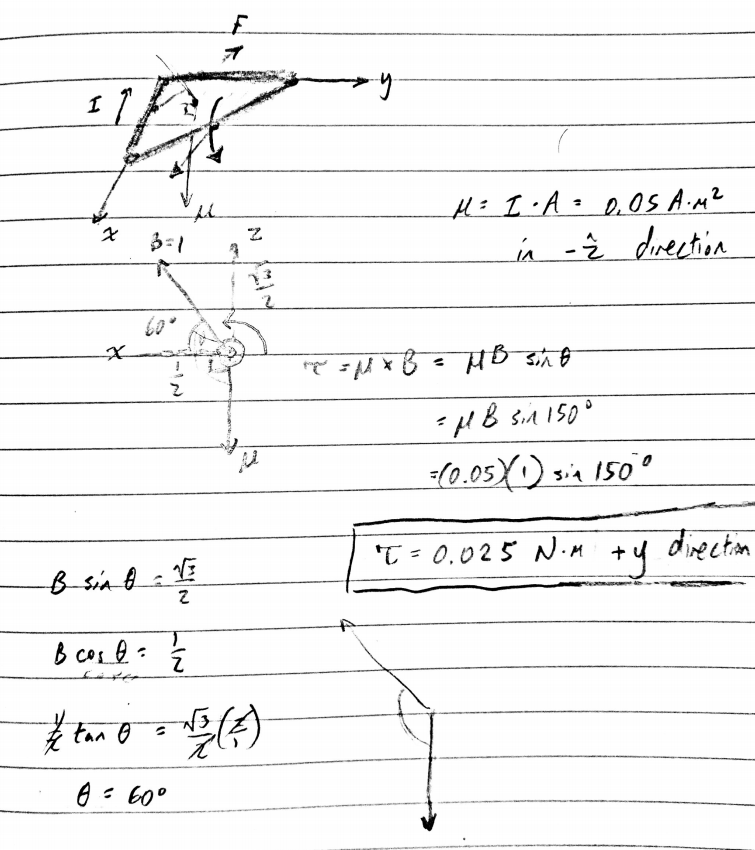 F
y
I
I
x
μ
μ = I · A = 0.05 A·m²
in -ẑ direction
B=1
z
√3/2
60°
x
1/2
τ = μ × B = μB sin θ
= μ B sin 150°
=(0.05)(1) sin 150°
μ
τ = 0.025 N·m +y direction
B sin θ = √3/2
B cos θ = 1/2
y/x tan θ = √3/2 (2/1)
θ = 60°